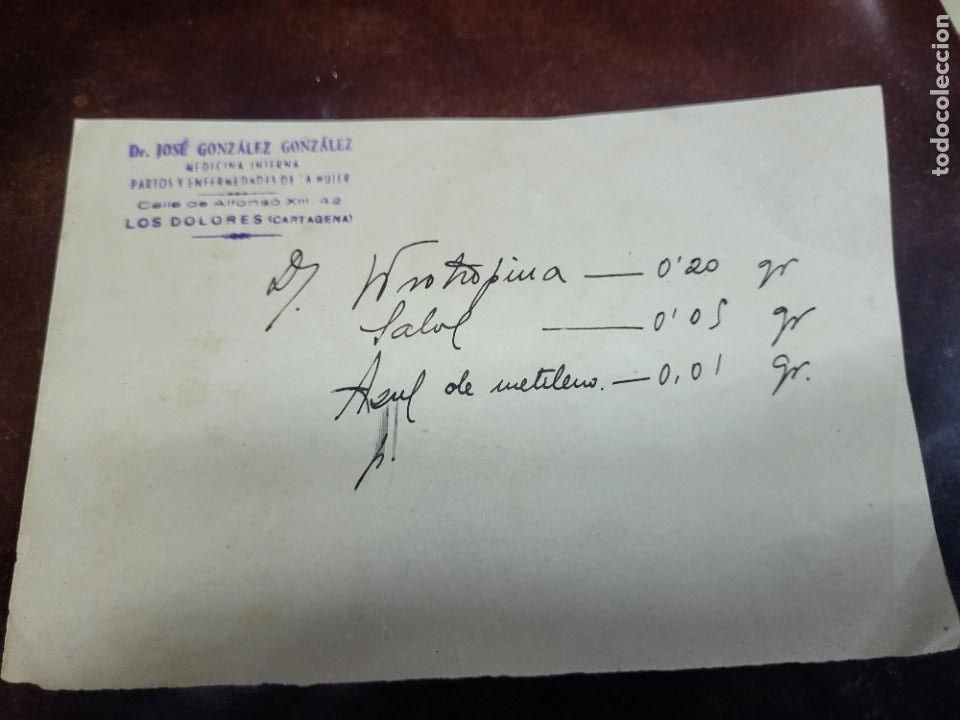 Dr. JOSÉ GONZÁLEZ GONZÁLEZ
MEDICINA INTERNA
PARTOS Y ENFERMEDADES DE LA MUJER
Calle de Alfonso XIII 42
LOS DOLORES (CARTAGENA)
D/. Urotropina — 0'20 gr
Salol — 0'05 gr
Azul de metileno. — 0,01 gr.
p.
todocoleccion